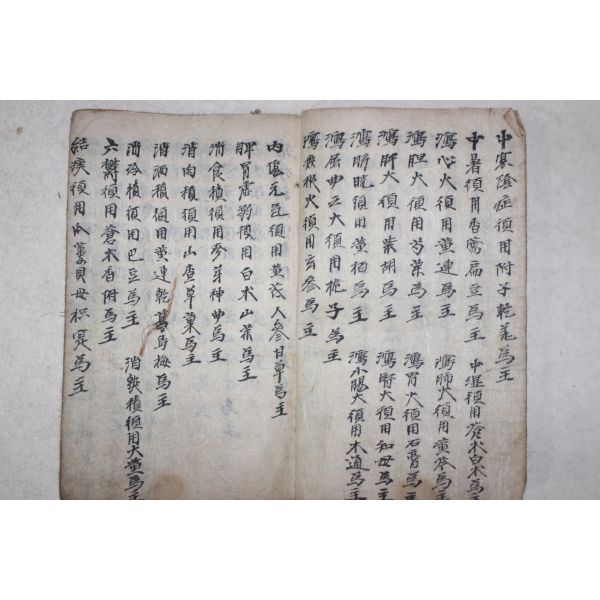 中寒陰症須用附子乾薑為主
中暑須用香薷扁豆為主 中湿須用蒼朮白朮為主
瀉心火須用黄連為主 瀉肺火須用黄芩為主
瀉胆火須用為主 瀉胃火須用石膏為主
瀉肝火須用柴胡為主 瀉腎火須用知母為主
瀉膀胱火須用黄栢為主 瀉小腸火須用木通為主
瀉屈曲之火須用梔子為主
瀉無根火須用玄參為主
內傷元氣須用黄茋人參甘草為主
脾胃虛弱須用白朮山藥為主
消食積須用麥芽神曲為主
消肉積須用山査草菓為主
消酒積須用黄連乾葛烏梅為主
消冷積須用巴豆為主 消熱積須用大黄為主
六鬱須用蒼朮香附為主
結痰須用瓜蔞貝母枳實為主